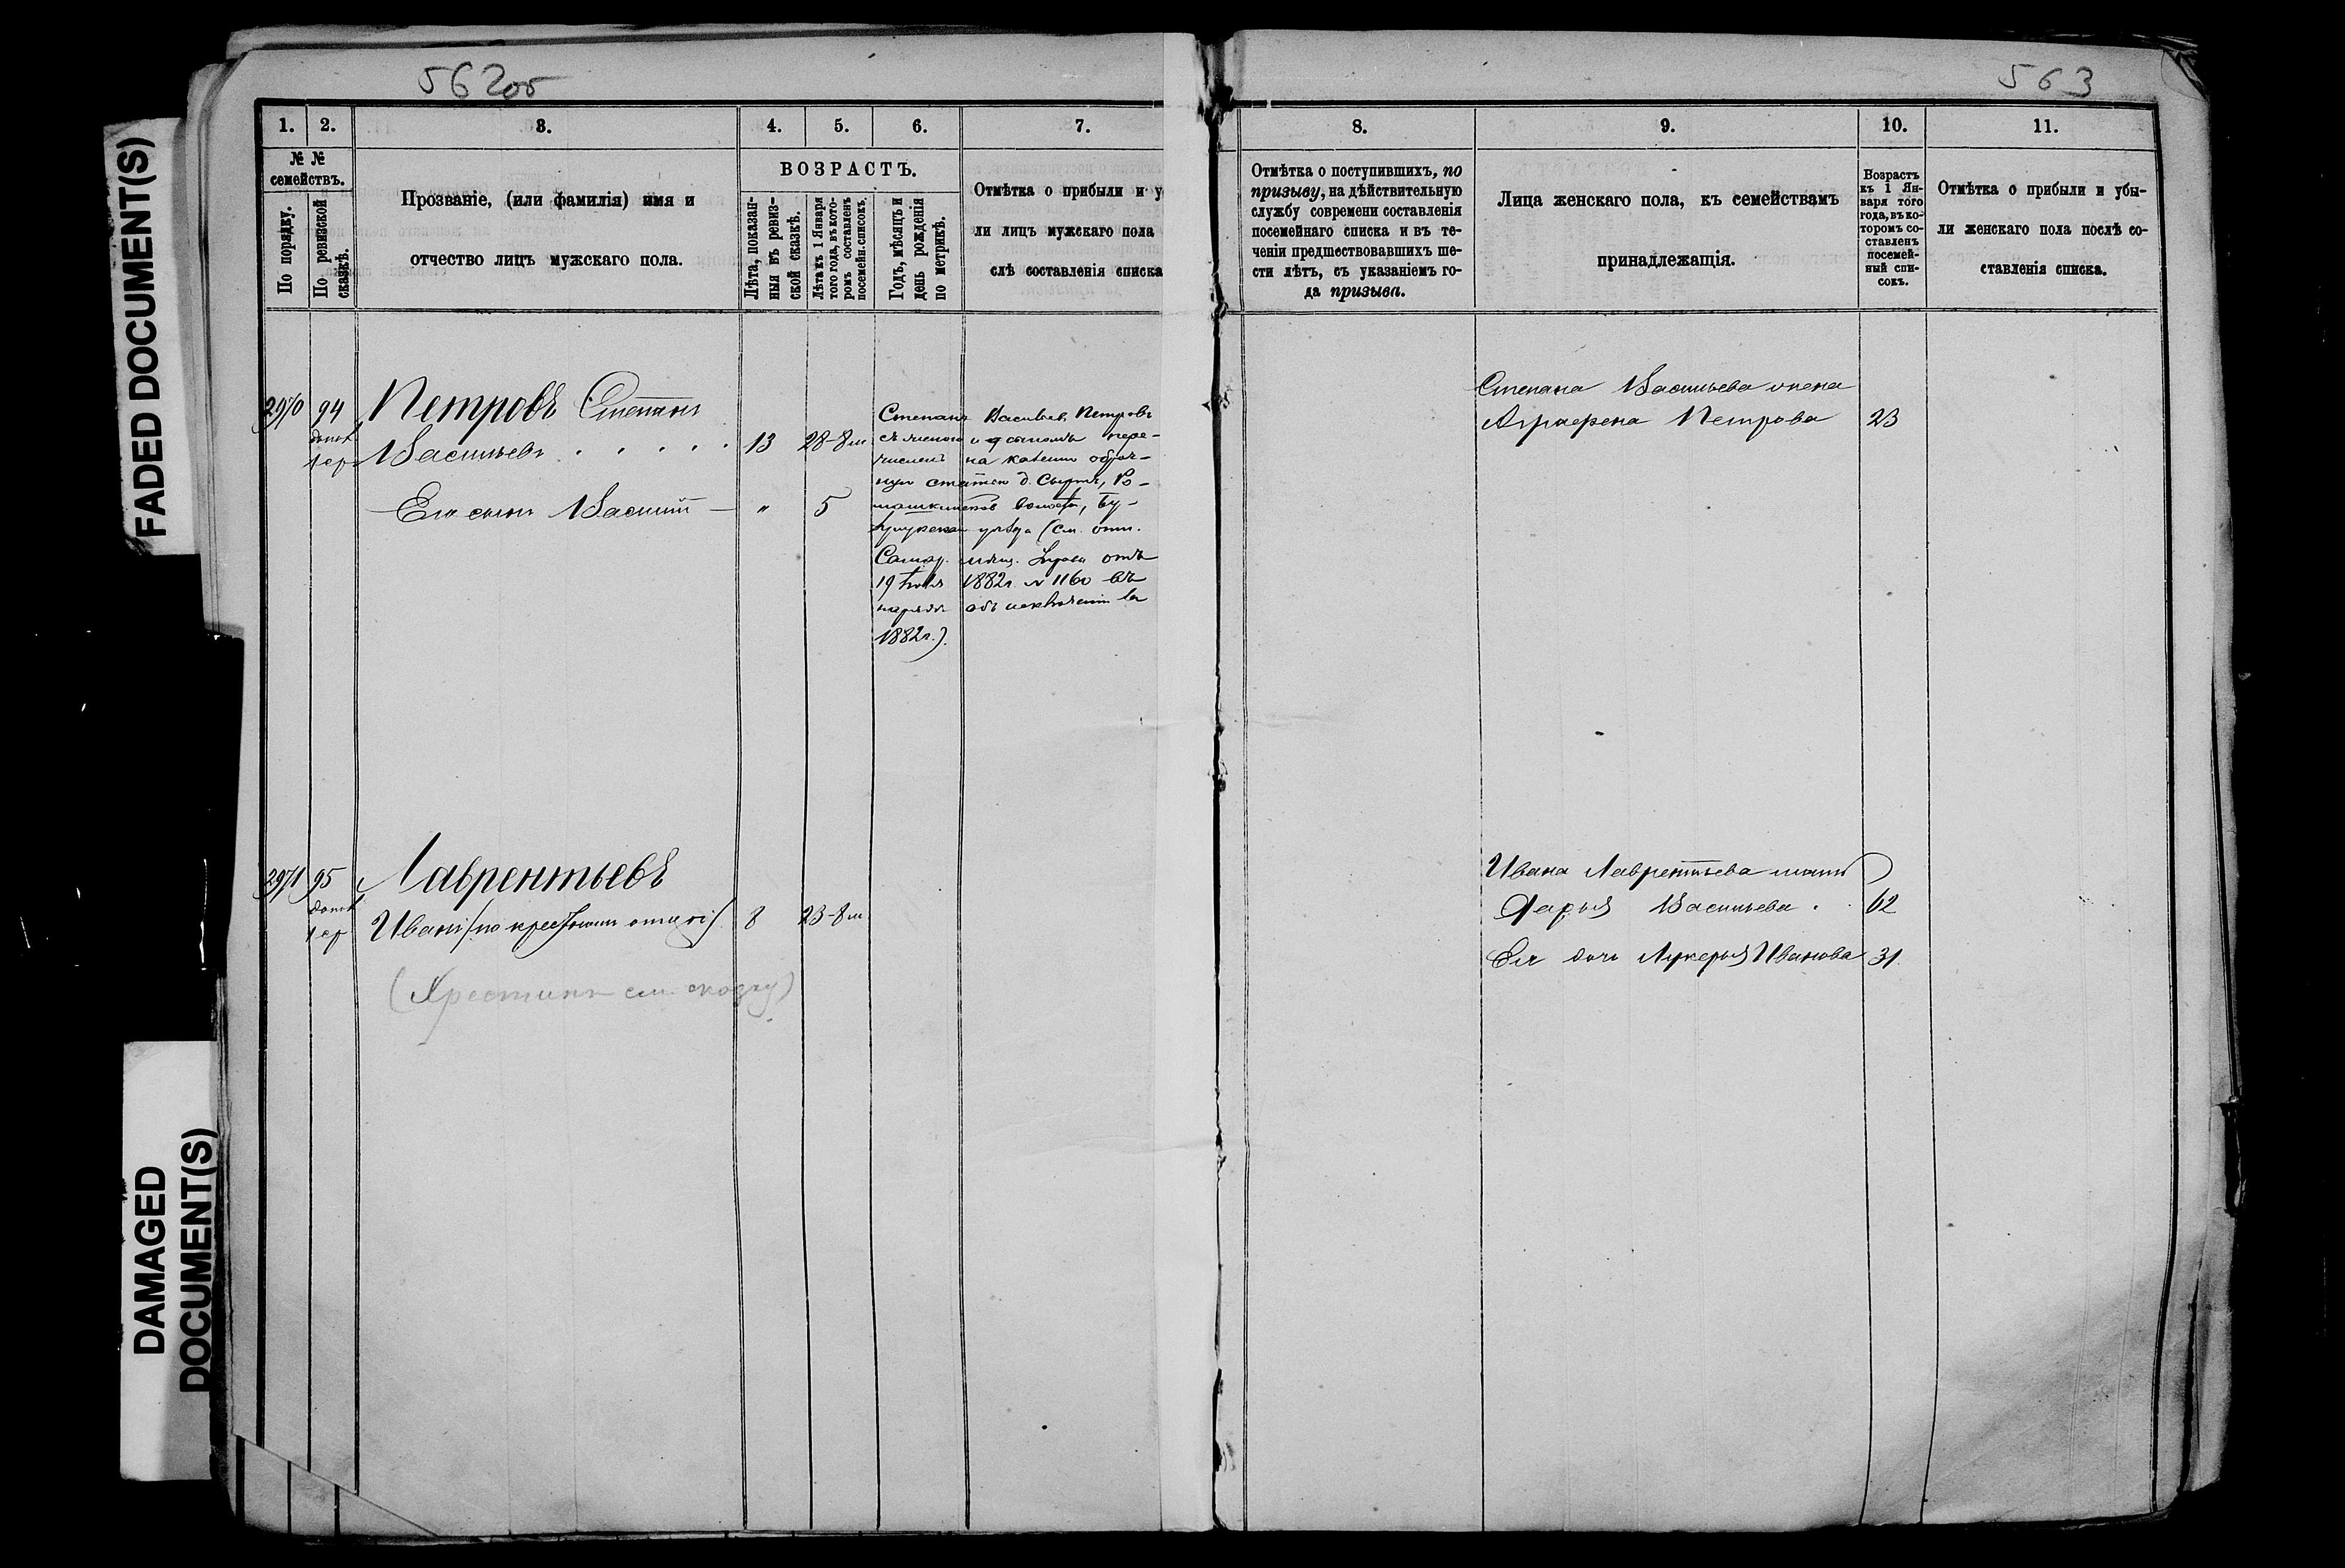 562об
563
FADED DOCUMENT(S)
DAMAGED
DOCUMENT(S)
1. 2. 3. 4. 5. 6. 7.
№ №
семействъ.
По порядку.
По ревизской
сказкѣ.
Прозваніе, (или фамилія) имя и
отчество лицъ мужскаго пола.
ВОЗРАСТЪ.
Лѣта, показан-
ныя въ ревиз-
ской сказкѣ.
Лѣта къ 1 Января
того года, въ кото-
ромъ составленъ
посемейн. списокъ.
Годъ, мѣсяцъ и
день рожденія
по метрикѣ.
Отмѣтка о прибыли и у
ли лицъ мужскаго пола
слѣ составленія списка
2970 94 Петровъ Степанъ
1 ср Васильевъ . . . . . 13 28-8 м
Его сынъ Василій — " 5
Степанъ Васильев. Петровъ
съ женою и сыномъ пере-
численъ на казенн оброч-
ную статью д. Сырт, Ро-
машкинской волости, Бу-
зулукскаго уѣзда (см. отн.
Самар. мѣщ. Управы отъ
19 Іюля 1882г. № 1160 въ
нарядѣ объ исключеніи за
1882г.).
2971 95 Лаврентьевъ
1 ср Иванъ (по крестному отцѣ) 8 23-8 м
8. 9. 10. 11.
Отмѣтка о поступившихъ, по
призыву, на дѣйствительную
службу современи составленія
посемейнаго списка и въ те-
ченіи предшествовавшихъ ше-
сти лѣтъ, съ указаніемъ го-
да призыва.
Лица женскаго пола, къ семействамъ
принадлежащія.
Возрастъ
къ 1 Ян-
варя того
года, въ ко-
торомъ со-
ставленъ
посемей-
ный спи-
сокъ.
Отмѣтка о прибыли и убы-
ли женскаго пола послѣ со-
ставленія списка.
Степана Васильева жена
Аграфена Петрова 23
Ивана Лаврентьева мать
Дарья Васильева . . 62
Ея дочь Лукерья Иванова 31